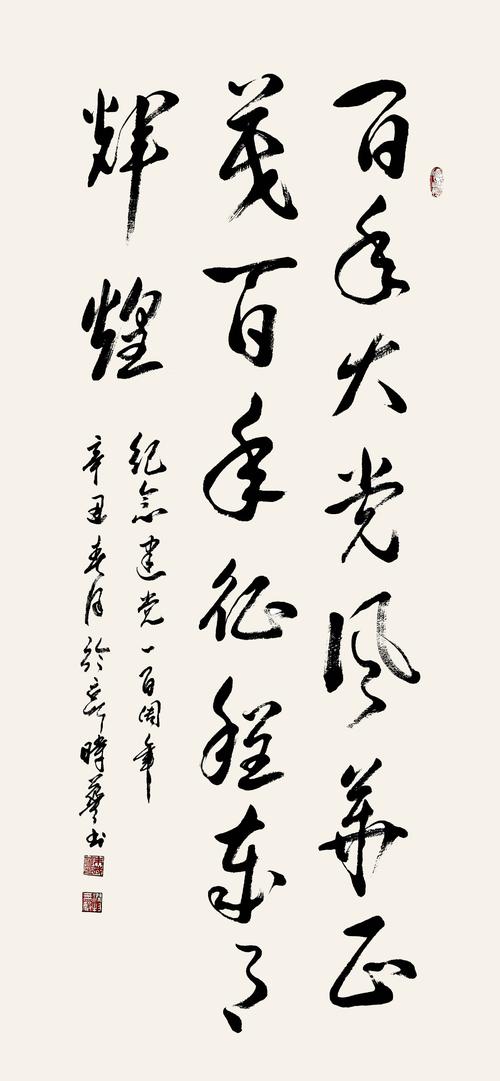 百年大党风华正
茂百年征程
辉煌
纪念建党一百周年
辛丑春月於時华书